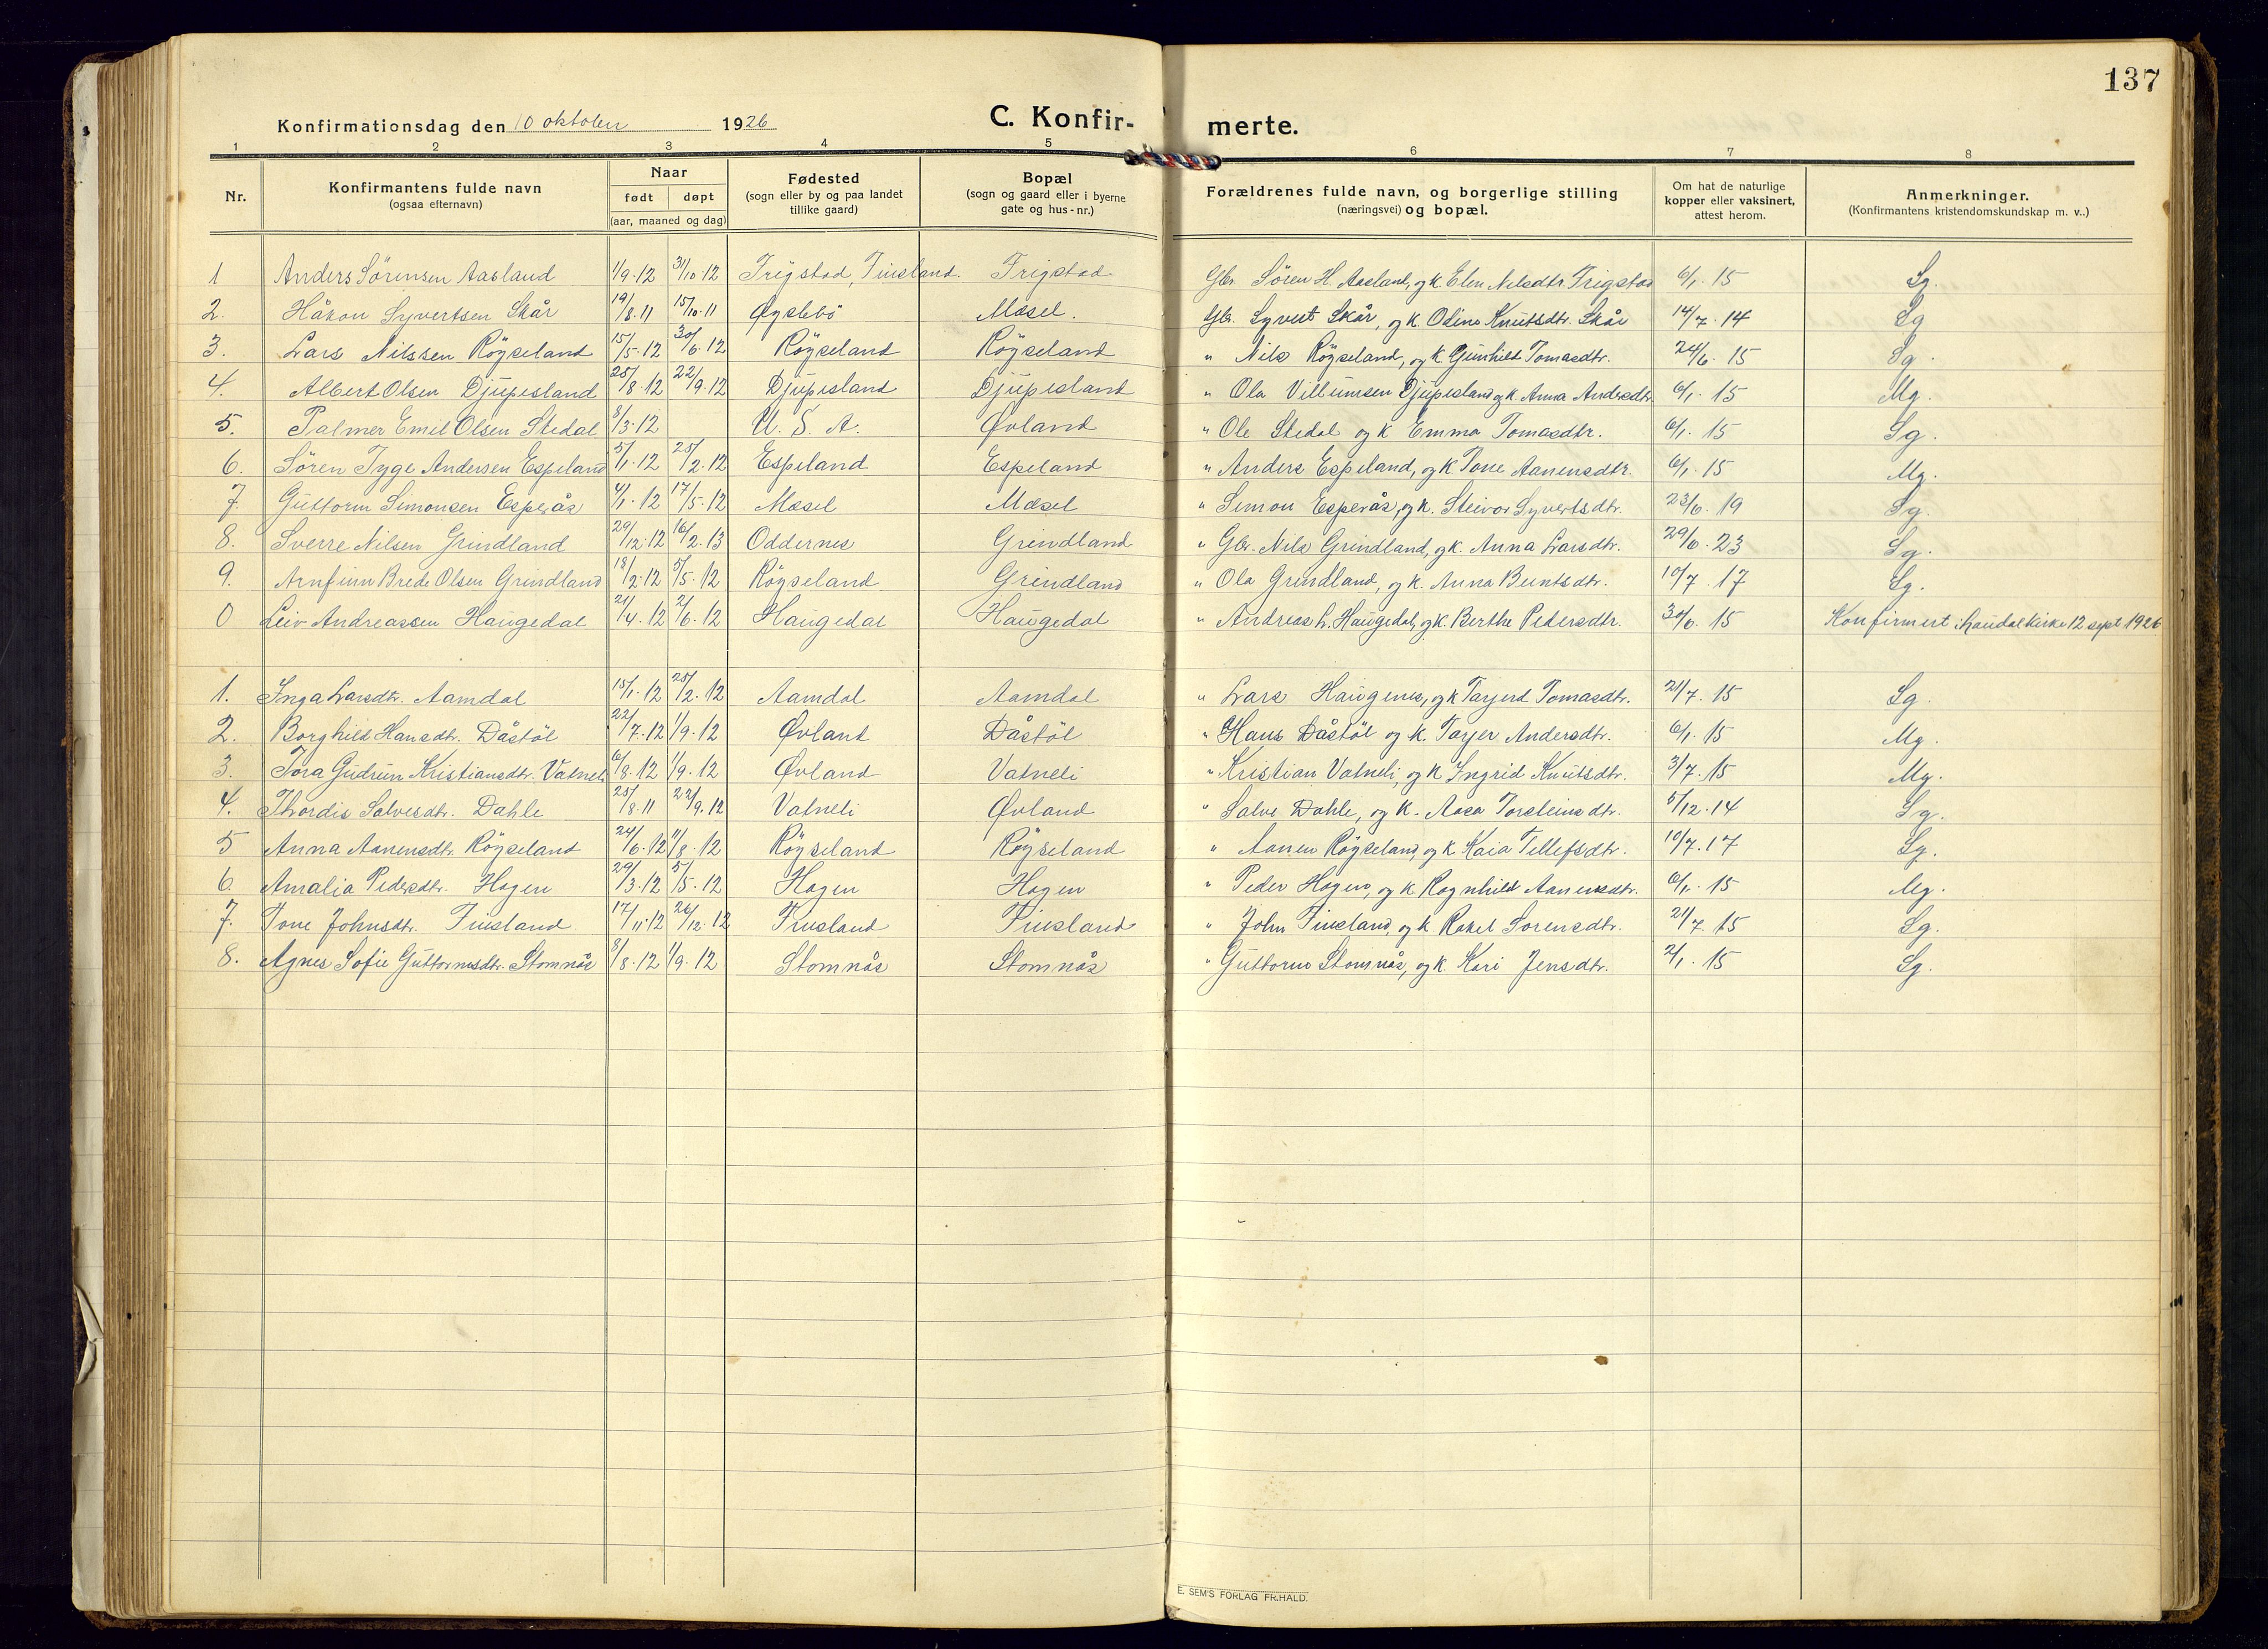 137
Konfirmationsdag den 10 oktober 1926
C. Konfir- merte.
1 2 3 4 5 6 7 8
Nr.
Konfirmantens fulde navn
(ogsaa efternavn)
Naar
født døpt
(aar, maaned og dag)
Fødested
(sogn eller by og paa landet
tillike gaard)
Bopæl
(sogn og gaard eller i byerne
gate og hus-nr.)
Forældrenes fulde navn, og borgerlige stilling
(næringsvei) og bopæl.
Om hat de naturlige
kopper eller vaksinert,
attest herom.
Anmerkninger.
(Konfirmantens kristendomskundskap m. v..)
1 Anders Sörensen Aasland 1/9.12 31/10.12 Trigstad, Finsland. Frigstad Gbr. Sören H. Aasland, og k. Elen Nilsdtr. Frigstad 6/1.15 Sg.
2. Håkon Syvertsen Skår 19/8.11 15/10.11 Øyslebö Mæsel. Gbr. Syvert Skår, og k. Odine Knutsdtr. Skår 14/7.14 Sg
3. Lars Nilssen Röyseland 15/5.12 30/6.12 Röyseland Röyseland " Nils Röyseland, og k Gunhild Tomasdtr. 24/6.15 Sg.
4. Albert Olsen Djupesland 25/8.12 22/9.12 Djupesland Djupesland " Ola Villumsen Djupesland og k. Anna Andersdtr. 6/1.15 Mg.
5. Palmer Emil Olsen Stedal 8/3.12 U. S. A. Øvland " Ole Stedal og k Emma Tomasdtr. 6/1.15 Sg.
6. Sören Tyge Andersen Espeland 5/1.12 25/2.12 Espeland Espeland " Anders Espeland, og k. Tone Aanensdtr. 6/1.15 Mg.
7. Guttorm Simonsen Esperås 4/1.12 17/5.12 Mæsel Mæsel " Simon Esperås, og k. Steivor Syvertsdtr. 23/6.19 Sg.
8. Sverre Nilsen Grindland 29/12.12 16/2.13 Oddernes Grindland " Gbr. Nils Grindland, og k. Anna Larsdtr. 29/6.23 Sg.
9. Arnfinn Brede Olsen Grindland 18/2.12 5/5.12 Röyseland Grindland " Ola Grindland, og k. Anna Berntsdtr. 10/7.17 Sg.
0 Leiv Andreassen Haugedal 21/4.12 2/6.12 Haugedal Haugedal " Andreas L. Haugedal, og k. Berthe Pedersdtr. 30/6.15 Konfirmert i Laudal kirke 12 sept 1926
1. Inga Larsdtr. Aamdal 15/1.12 25/2.12 Aamdal Aamdal " Lars Haugenes, og k Tarjerd Tomasdtr. 21/7.15 Sg.
2. Borghild Hansdtr. Dåstöl 22/7.12 1/9.12 Øvland Dåstöl " Hans Dåstöl og k. Tarjer Andersdtr. 6/1.15 Mg.
3. Tora Gudrun Kristiansdtr. Vatneli 6/8.12 1/9.12 Øvland Vatneli " Kristian Vatneli, og k Ingrid Knutsdtr. 3/7.15 Mg.
4. Thordis Salvesdtr. Dahle 25/8.11 22/9.12 Vatneli Øvland " Salve Dahle, og k. Aasa Torsteinsdtr. 5/12.14 Sg.
5 Anna Aanensdtr. Röyseland 24/6.12 11/8.12 Röyseland Röyseland " Aanen Röyseland, og k Kaia Tellefsdtr. 10/7.17 Sg.
6. Amalia Pedersdtr. Hagen 29/3.12 5/5.12 Hagen Hagen " Peder Hagen, og k Ragnhild Aanensdtr. 6/1.15 Mg.
7. Tone Johnsdtr. Finsland 17/11.12 26/12.12 Finsland Finsland " John Finsland, og k. Rakel Sorensdtr. 21/7.15 Sg.
8. Agnes Sofie Guttormsdtr. Stomnås 8/8.12 1/9.12 Stomnås Stomnås " Guttorm Stomnås, og k. Kari Jensdtr. 2/1.15 Sg.
E. SEM'S FORLAG FR.HALD.